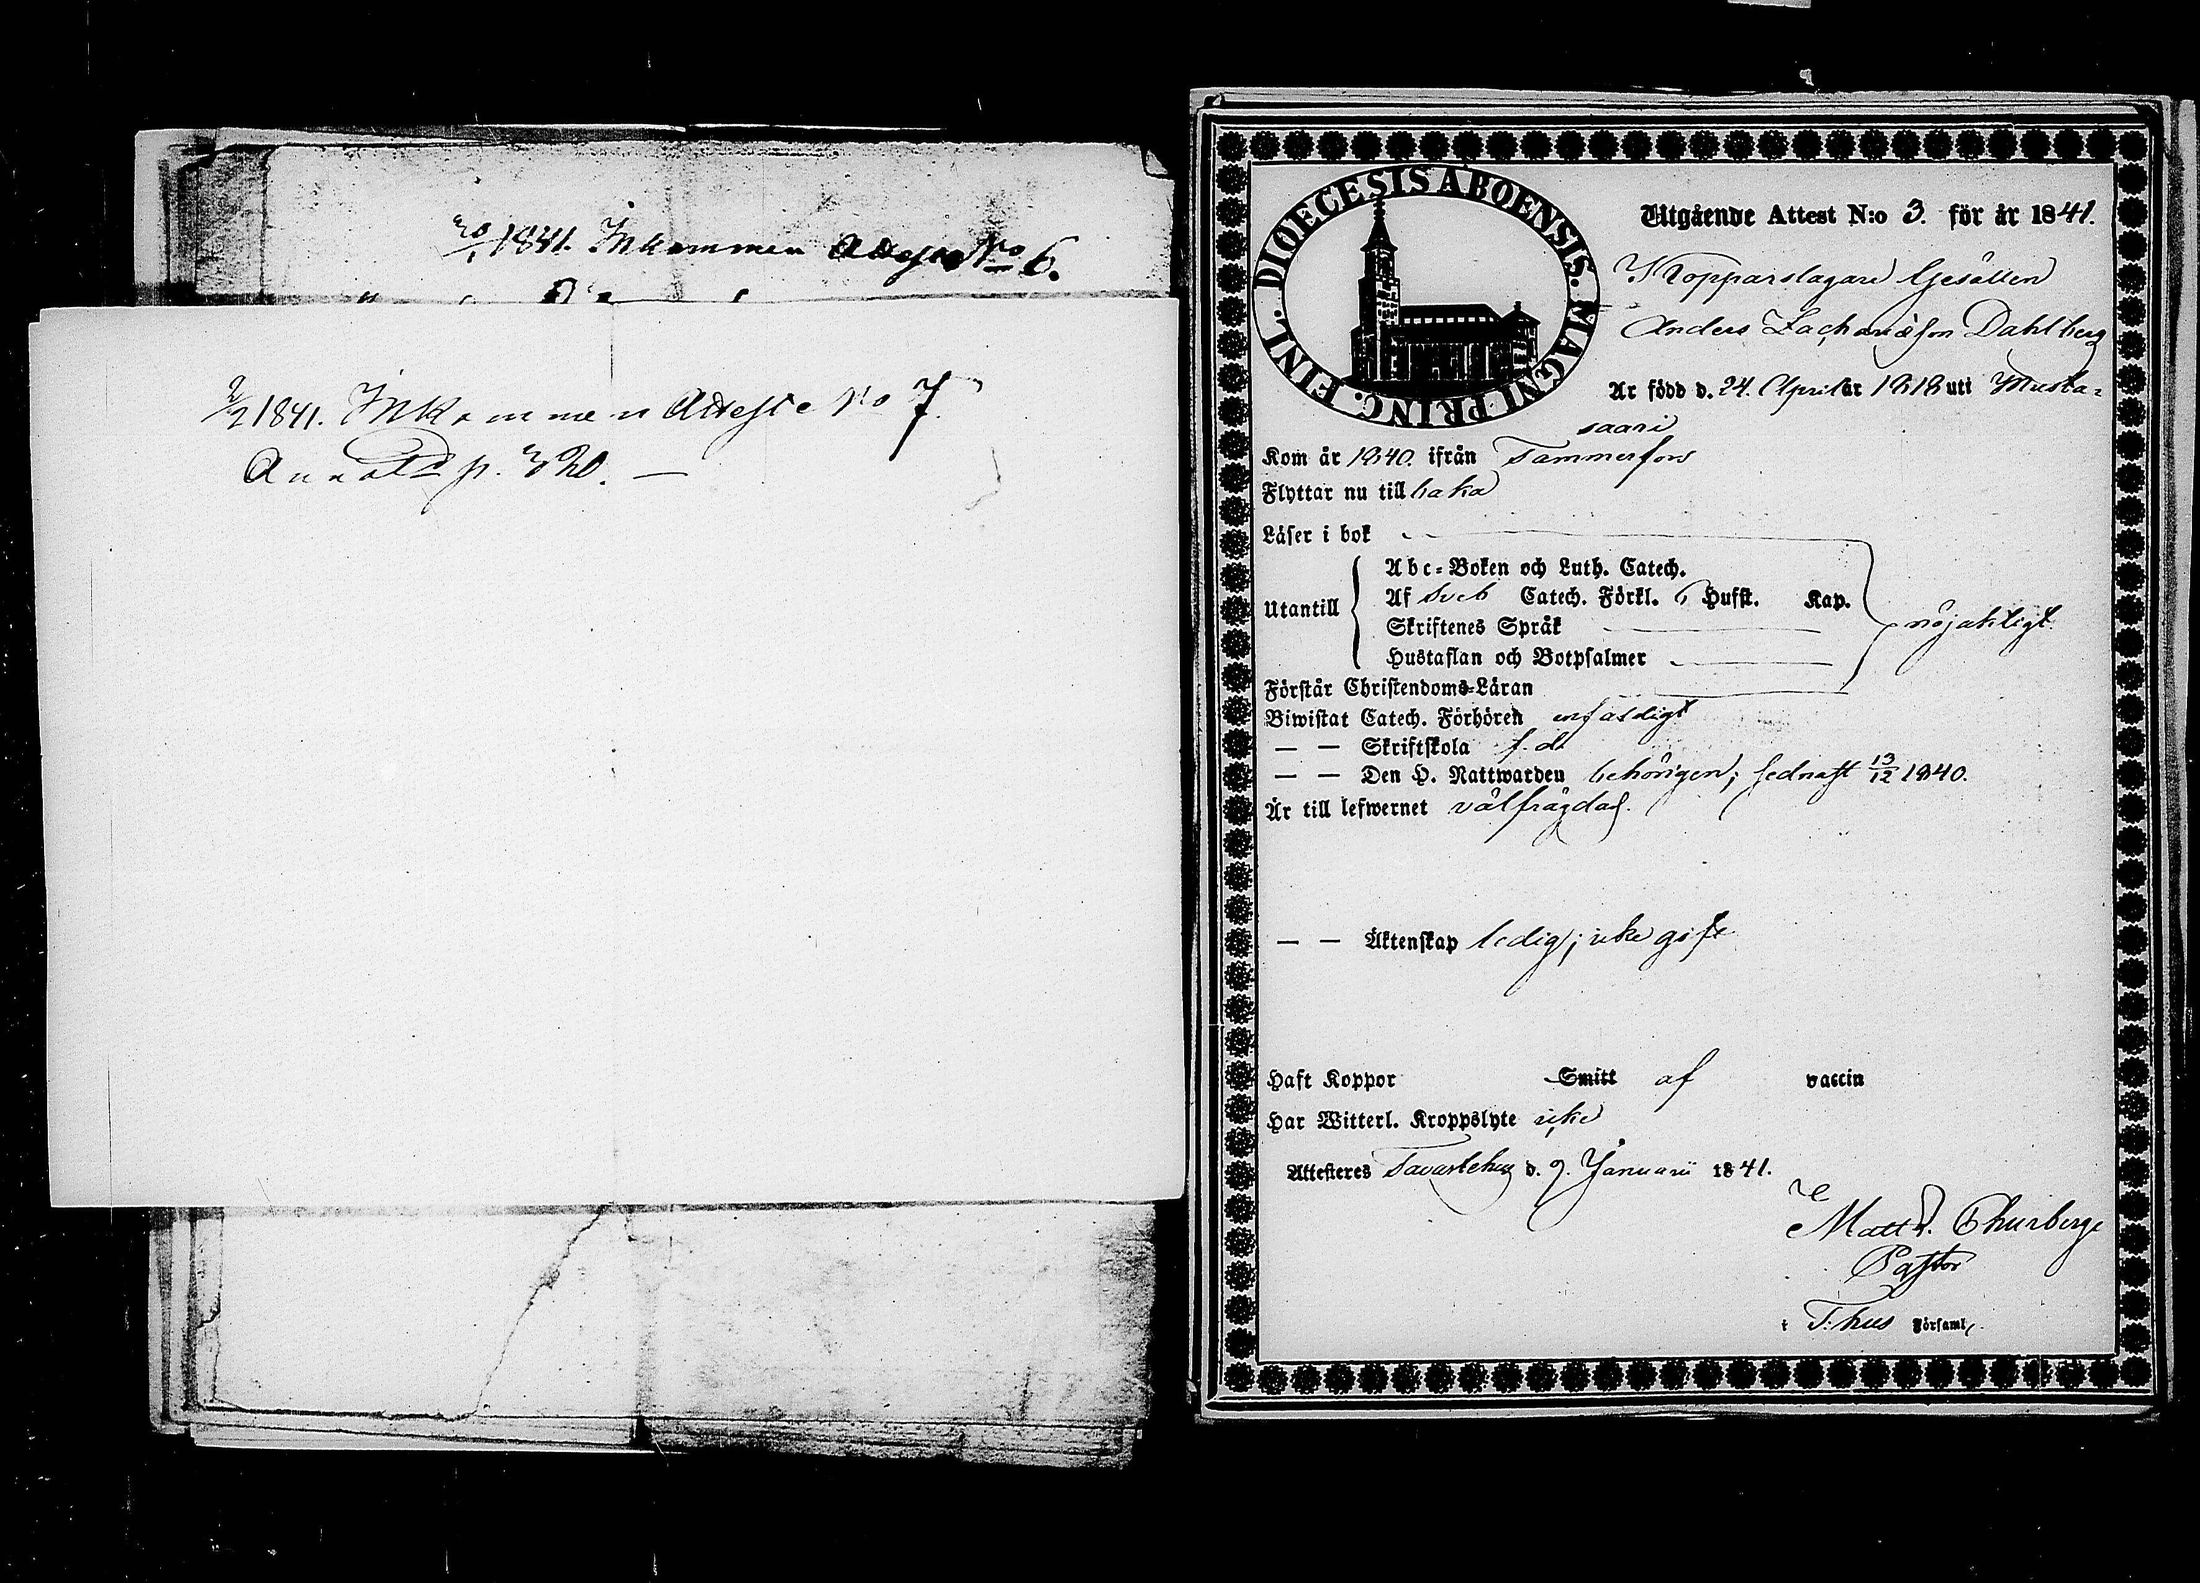 30/1 1841. Inkommen Attest No 6.
2/2 1841. Inkommen Attest No 7.
Annot. p. 320. —
DIOECESIS ABOENSIS. MAGNI PRINC. FINL.
Utgående Attest N:o 3. för år 1841.
Kopparslagare Gesällen
Anders Zachariæson Dahlberg
Är född d. 24. April år 1818 uti Musta-
saari
Kom år 1840. ifrån Tammerfors
Flyttar nu till baka
Läser i bok
Abc-Boken och Luth. Catech.
Utantill Af Sveb Catech. Förkl. 6 Hufst. Kap. nöjaktigt.
Skriftenes Språk
Hustaflan och Botpsalmer
Förstår Christendoms-Läran
Biwistat Catech. Förhören enfaldigt
— — Skriftskola f. d.
— — Den H. Nattwarden behörigen; sednast 13/12 1840.
Är till lefwernet välfrägdad.
— — Äktenskap ledig; icke gift
Haft Koppor Smitt af vaccin
Har Witterl. Kroppslyte icke
Attesteres Tavastehus d. 9. Januarii 1841.
Matt. Thurberg
Pastor
i T:hus Församl.